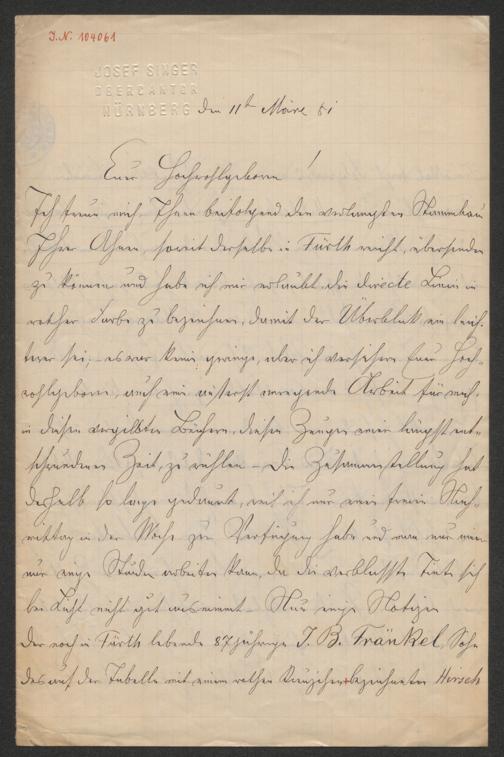 J.N. 104061
JOSEF SINGER
OBERCANTOR
NÜRNBERG den 11th März 81
Euer Hochwohlgeboren!
Ich freue mich Ihnen beifolgend den verlangten Stammbaum
Ihrer Ahnen, soweit derselbe in Fürth reicht, übersenden
zu können und habe ich mir erlaubt die directe Linie in
rother Farbe zu bezeichnen, damit der Überblick ein leich-
terer sei, – es war keine geringe, aber ich versichere Euer Hoch-
wohlgeboren, auch eine äusserst anregende Arbeit für mich,
in diesen vergilbten Büchern, diesen Zeugen einer längst ent-
schwundenen Zeit, zu wühlen – Die Zusammenstellung hat
deshalb so lange gedauert, weil ich nur einen freien Nach-
mittag in der Woche zur Verfügung habe und man nur immer
nur einige Stunden arbeiten kann, da die verblasste Tinte sich
bei Licht nicht gut ausnimmt – Nur einige Notizen
Der noch in Fürth lebende 87jährige J. B. Fränkel, Sohn
des auf der Tabelle mit einem rothen Kreuzchen + bezeichneten Hirsch